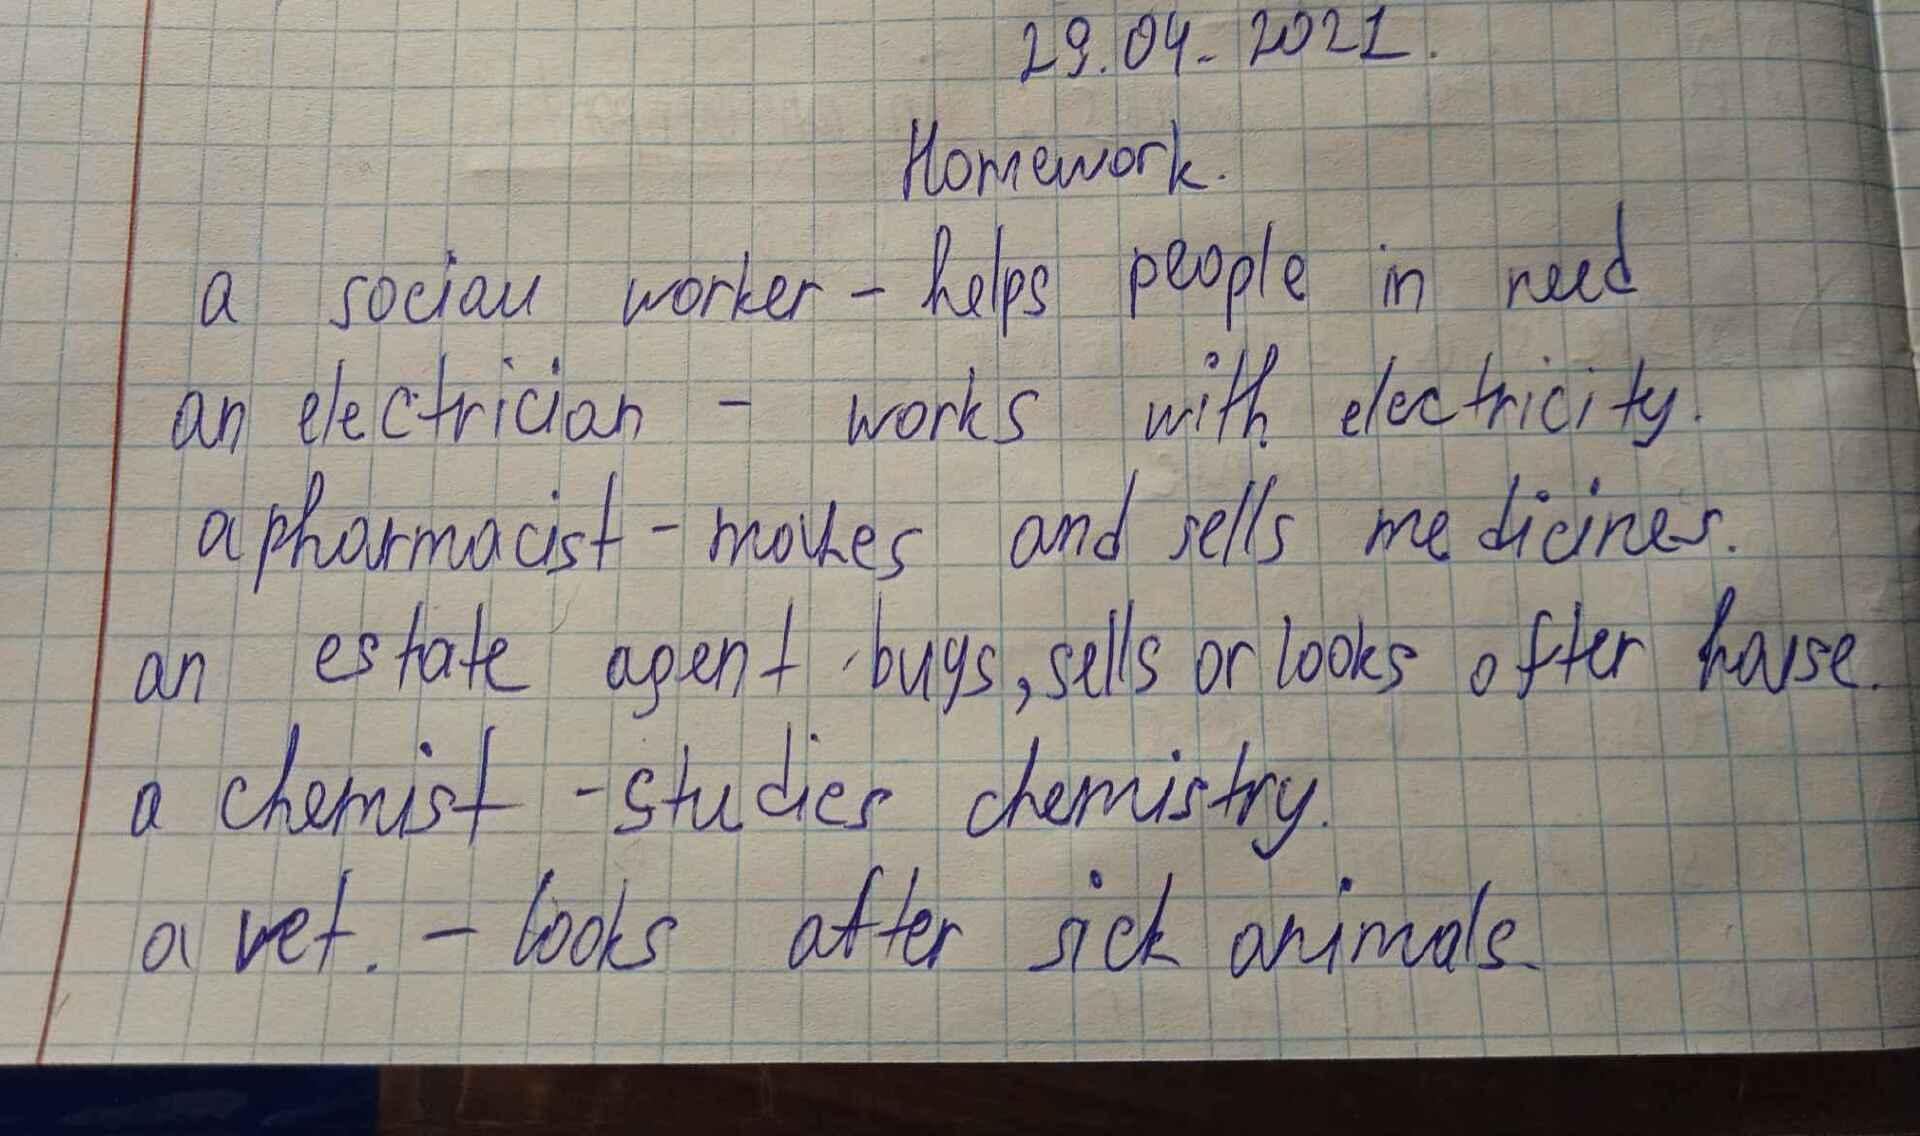 29.04.2021.
Homework.
a social worker - helps people in need
an electrician - works with electricity.
a pharmacist - makes and sells medicines.
an estate agent - buys, sells or looks after house.
a chemist - studies chemistry.
a vet. - looks after sick animals